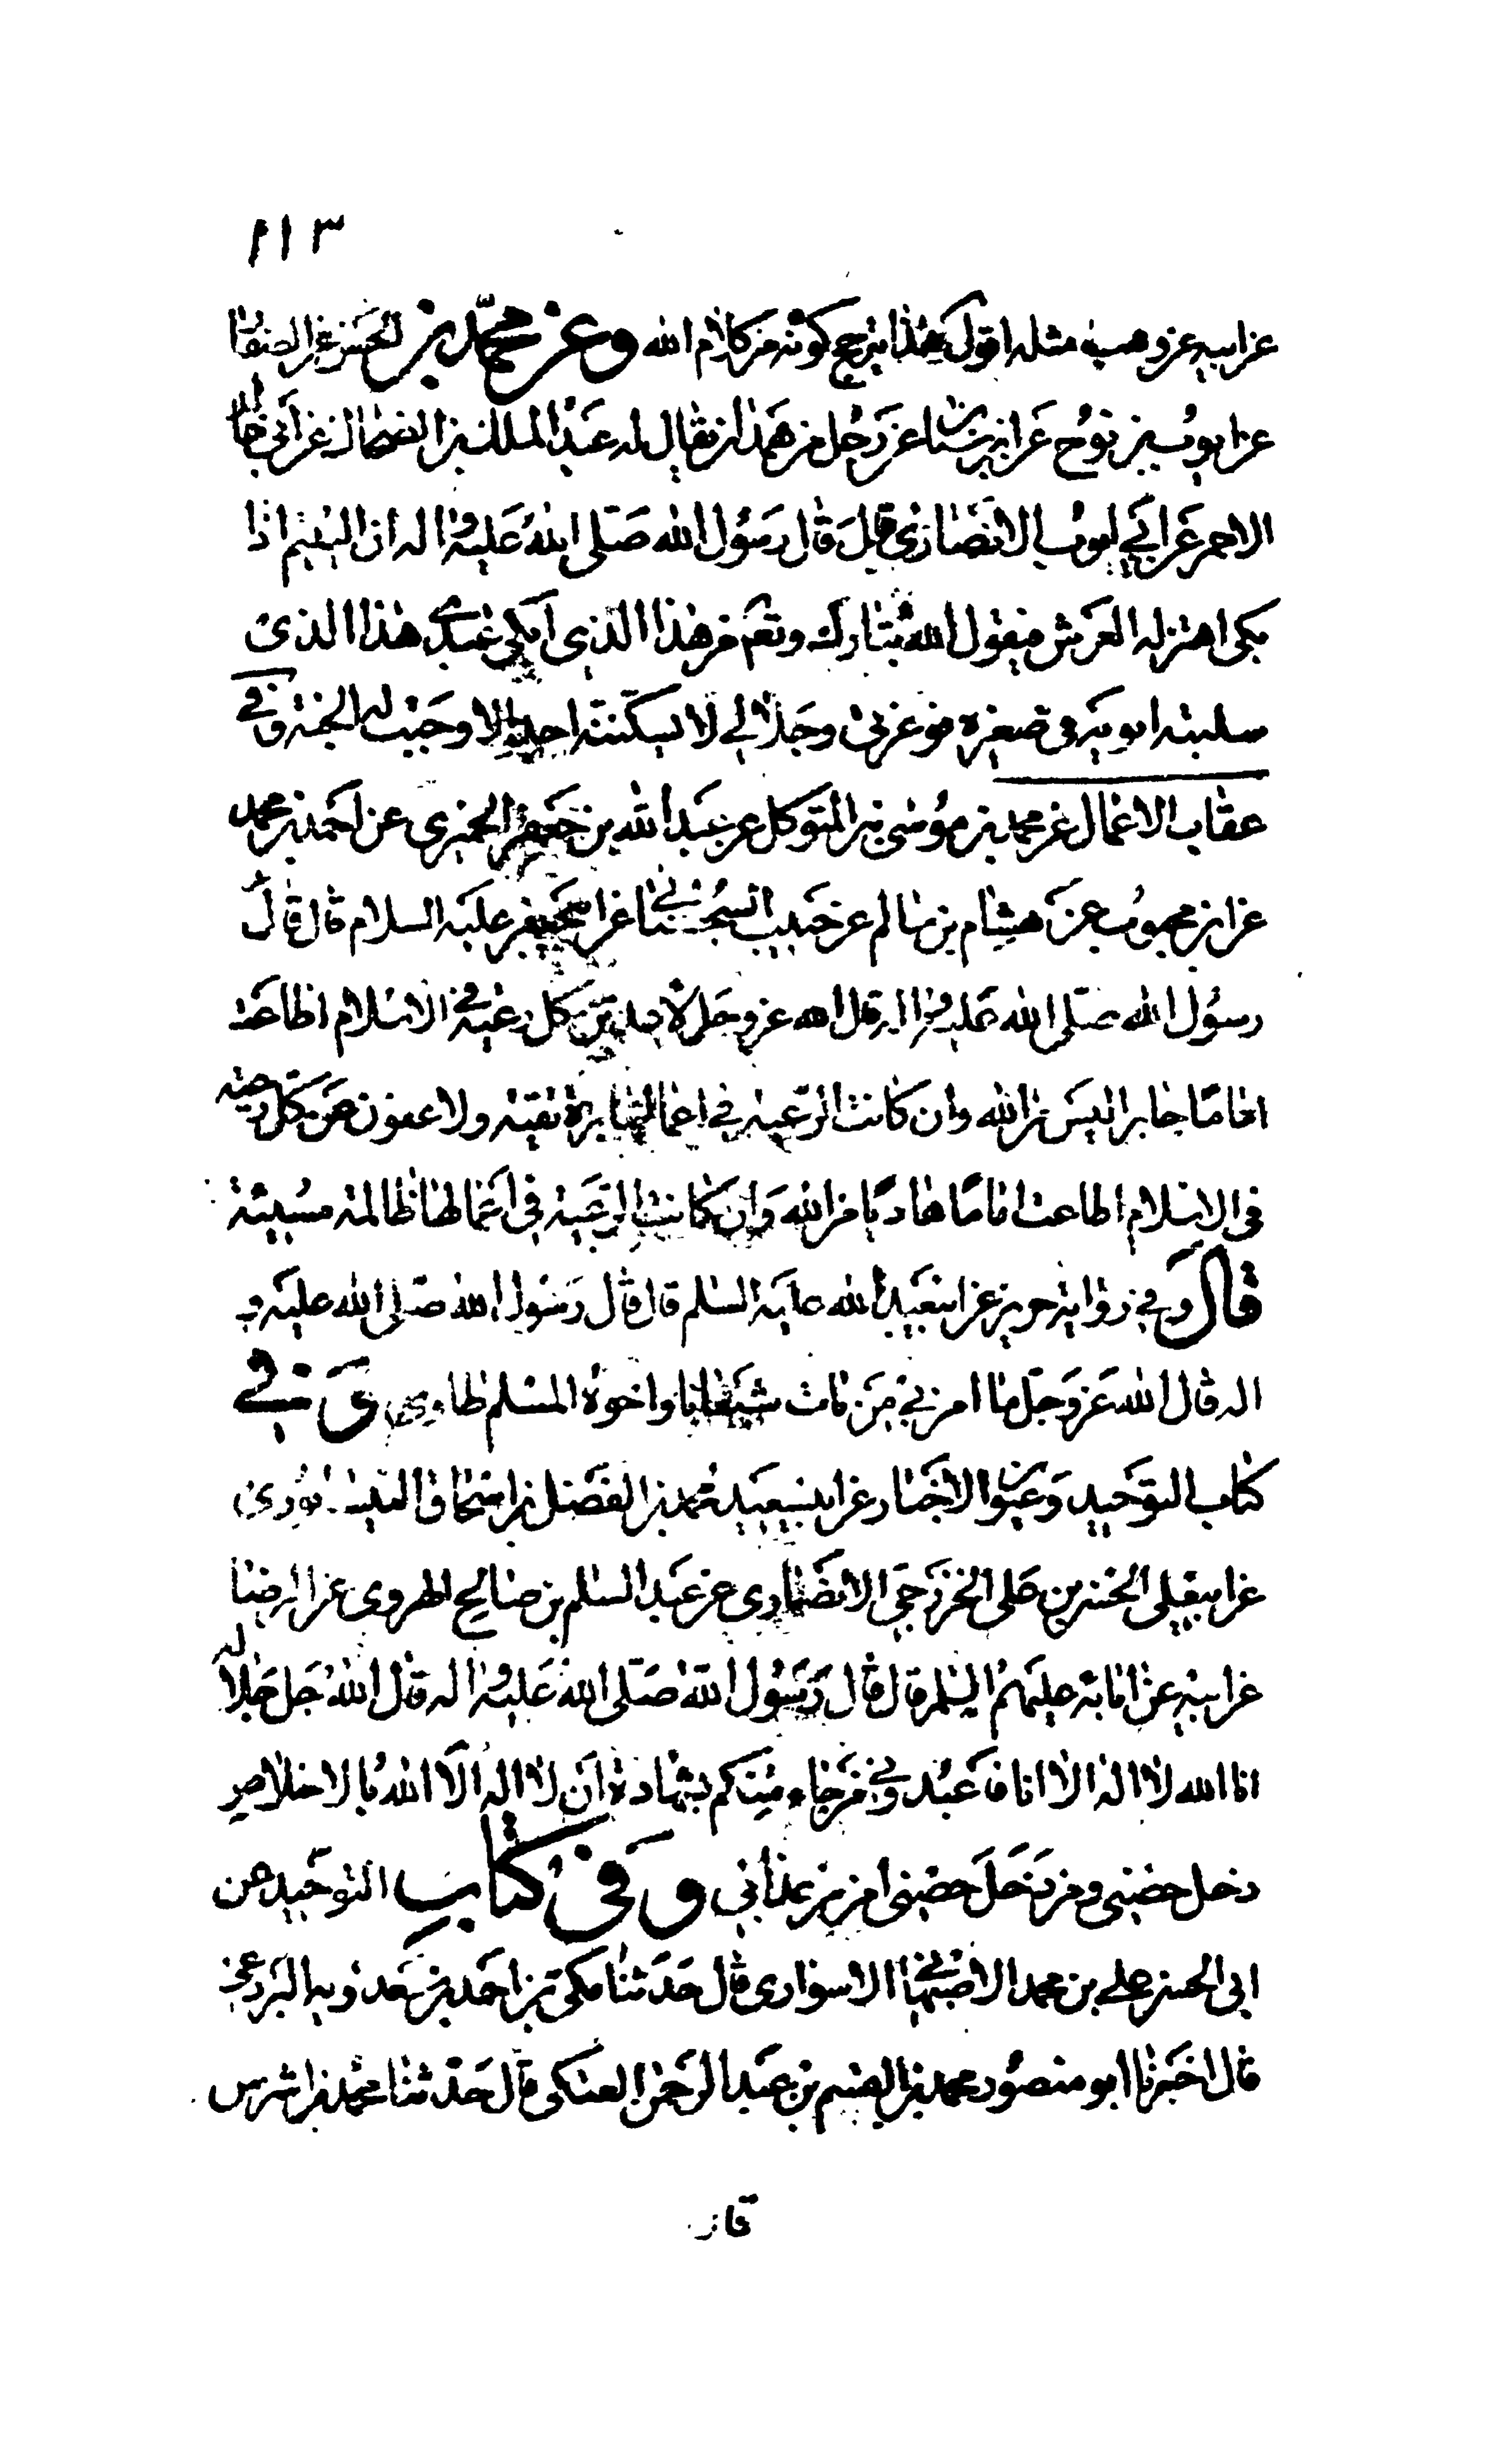 ١١٣
عن ابيه عن وهب مثله اقول هذا يرجح كونه من كلام الله وعن محمد بن الحسن عن الصفار
عن ايوب بن نوح عن ابن سنان عن رجل من همدان يقال له عبد الملك بن الضحاك عن ابي خالد
الاحمر عن ابي ايوب الانصاري قال قال رسول الله صلى الله عليه واله ان اليتيم اذا
بكى اهتز له العرش فيقول الله تبارك وتعالى من هذا الذي ابكى عبدي هذا الذي
سلبته ابويه في صغره فوعزتي وجلالي لا يسكته احد الا وجبت له الجنة وفي
عقاب الاعمال عن محمد بن موسى بن المتوكل عن عبد الله بن جعفر الحميري عن احمد بن محمد
عن ابن محبوب عن هشام بن سالم عن حبيب السجستاني عن ابي جعفر عليه السلام قال قال
رسول الله صلى الله عليه واله قال الله عز وجل لاعذبن كل رعية في الاسلام اطاعت
اماما جابرا ليس من الله وان كانت الرعية في اعمالها برة تقية ولا عفون عن كل رعية
في الاسلام اطاعت اماما هاديا من الله وان كانت الرعية في اعمالها ظالمة مسيئة
قال وفي رواية حريز عن ابيعبد الله عليه السلم قال قال رسول الله صلى الله عليه و
اله قال الله عز وجل ما امن بي من بات شبعانا واخوه المسلم طاوي وفي
كتاب التوحيد وعيون الاخبار عن ابيسعيد محمد بن الفضل بن اسحاق النيسابوري
عن ابيعلي الحسن بن علي الخزرجي الانصاري عن عبد السلم بن صالح الهروي عن الرضا
عن ابيه عن ابائه عليهم السلم قال قال رسول الله صلى الله عليه واله قال الله جل جلاله
انا الله لا اله الا انا فاعبدوني من جاء منكم بشهادة ان لا اله الا الله بالاخلاص
دخل حصني ومن دخل حصني امن من عذابي وفي كتاب التوحيد عن
ابي الحسن علي بن محمد الاصبهاني الاسواري قال حدثنا مكي بن احمد بن سعدويه البردعي
قال اخبرنا ابو منصور محمد بن القسم بن عبد الرحمن العتكي قال حدثنا محمد بن اشرس
قال